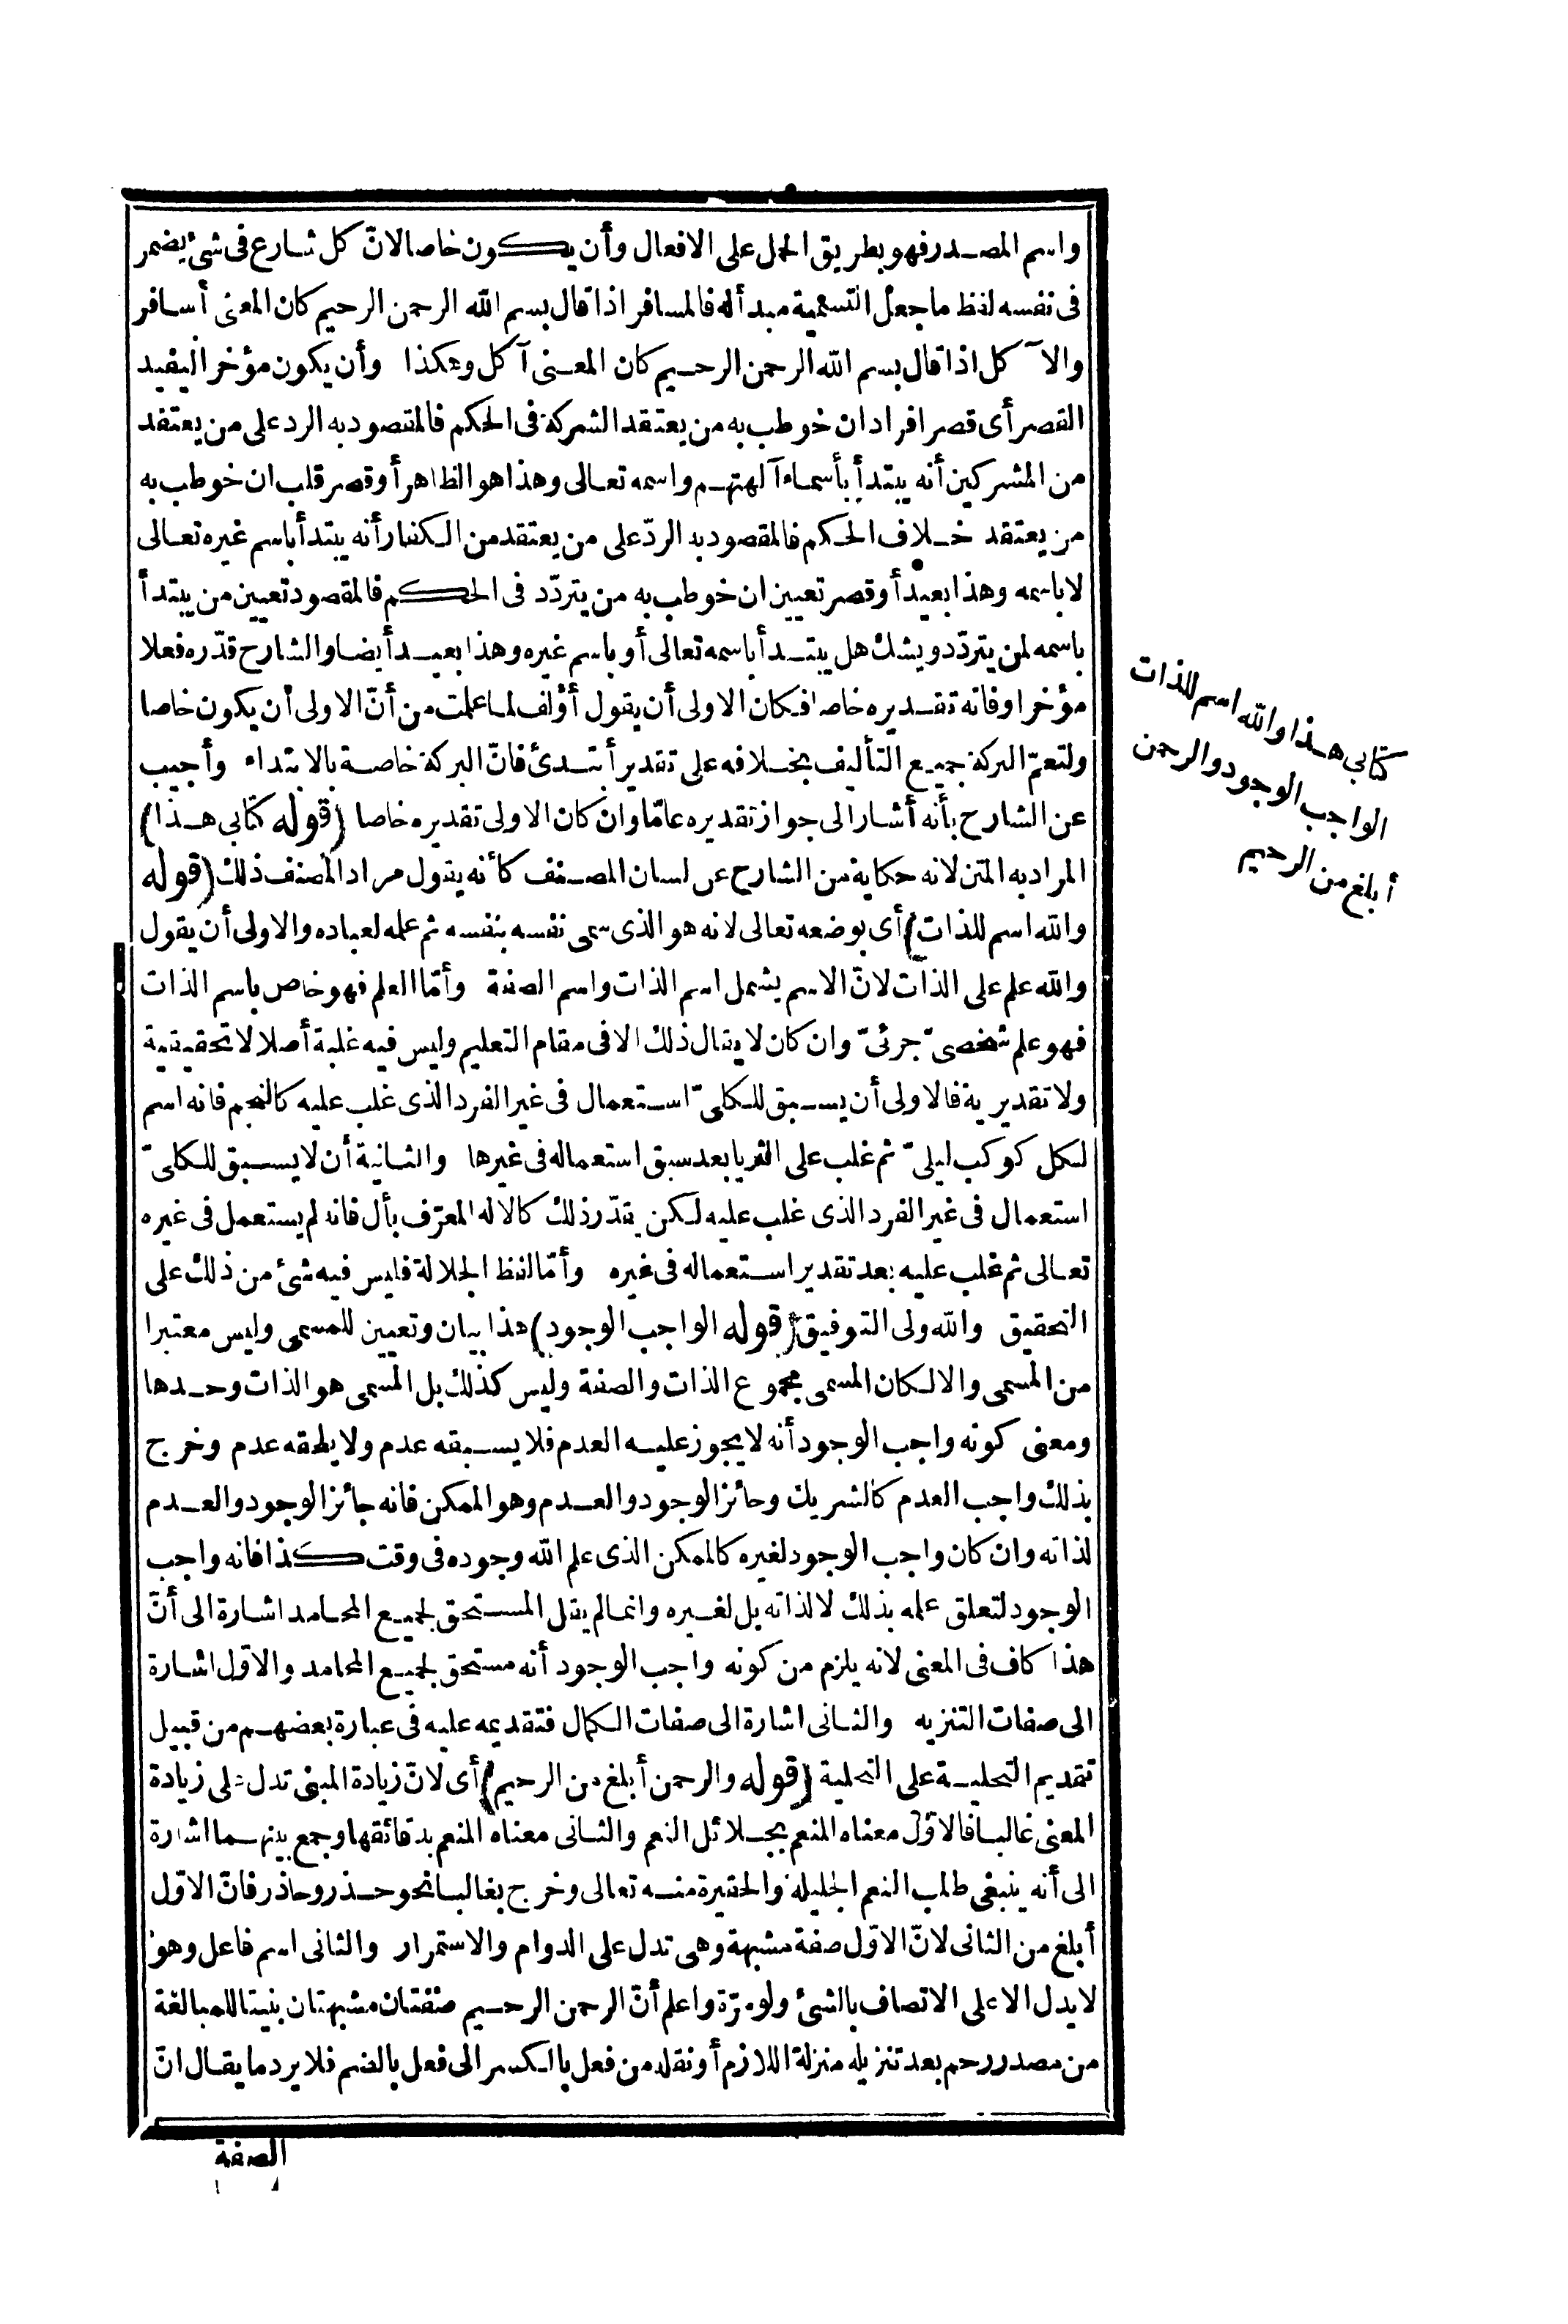 واسم المصدر فهو بطريق الحمل على الافعال وأن يكون خاصا لانّ كل شارع فى شئ يضمر
فى نفسه لفظ ما جعل التسمية مبدأ له فالمسافر اذا قال بسم الله الرحمن الرحيم كان المعنى أسافر
والآكل اذا قال بسم الله الرحمن الرحيم كان المعنى آكل وهكذا وأن يكون مؤخرا ليفيد
القصر أى قصر افراد ان خوطب به من يعتقد الشركة فى الحكم فالمقصود به الرد على من يعتقد
من المشركين أنه يبتدأ بأسماء آلهتهم واسمه تعالى وهذا هو الظاهر أو قصر قلب ان خوطب به
من يعتقد خلاف الحكم فالمقصود به الردّ على من يعتقد من الكفار أنه يبتدأ باسم غيره تعالى
لا باسمه وهذا بعيد أو قصر تعيين ان خوطب به من يتردّد فى الحكم فالمقصود تعيين من يبتدأ
باسمه لمن يتردّد ويشك هل يبتدأ باسمه تعالى أو باسم غيره وهذا بعيد أيضا والشارح قدّره فعلا
مؤخرا وفاته تقديره خاصا فكان الاولى أن يقول أؤلف لما علمت من أنّ الاولى أن يكون خاصا
ولتعمّ البركة جميع التأليف بخلافه على تقدير أبتدئ فانّ البركة خاصة بالابتداء وأجيب
عن الشارح بأنه أشار الى جواز تقديره عامّا وان كان الاولى تقديره خاصا (قوله كتابى هذا)
المراد به المتن لانه حكاية من الشارح عن لسان المصنف كأنه يقول مراد المصنف ذلك (قوله
والله اسم للذات) أى بوضعه تعالى لانه هو الذى سمى نفسه بنفسه ثم علمه لعباده والاولى أن يقول
والله علم على الذات لانّ الاسم يشمل اسم الذات واسم الصفة وأمّا العلم فهو خاص باسم الذات
فهو علم شخصىّ جزئىّ وان كان لا يقال ذلك الا فى مقام التعليم وليس فيه غلبة أصلا لا تحقيقية
ولا تقديرية فالاولى أن يسبق للكلىّ استعمال فى غير الفرد الذى غلب عليه كالنجم فانه اسم
لكل كوكب ليلىّ ثم غلب على الثريا بعد سبق استعماله فى غيرها والثانية أن لا يسبق للكلىّ
استعمال فى غير الفرد الذى غلب عليه لكن يقدّر ذلك كالاله المعرّف بأل فانه لم يستعمل فى غيره
تعالى ثم غلب عليه بعد تقدير استعماله فى غيره وأمّا لفظ الجلالة فليس فيه شئ من ذلك على
التحقيق والله ولى التوفيق (قوله الواجب الوجود) هذا بيان وتعيين للمسمى وليس معتبرا
من المسمى والا لكان المسمى مجموع الذات والصفة وليس كذلك بل المسمى هو الذات وحدها
ومعنى كونه واجب الوجود أنه لا يجوز عليه العدم فلا يسبقه عدم ولا يلحقه عدم وخرج
بذلك واجب العدم كالشريك وجائز الوجود والعدم وهو الممكن فانه جائز الوجود والعدم
لذاته وان كان واجب الوجود لغيره كالممكن الذى علم الله وجوده فى وقت كذا فانه واجب
الوجود لتعلق علمه بذلك لا لذاته بل لغيره وانما لم يقل المستحق لجميع المحامد اشارة الى أنّ
هذا كاف فى المعنى لانه يلزم من كونه واجب الوجود أنه مستحق لجميع المحامد والاوّل اشارة
الى صفات التنزيه والثانى اشارة الى صفات الكمال فتقديمه عليه فى عبارة بعضهم من قبيل
تقديم التخلية على التحلية (قوله والرحمن أبلغ من الرحيم) أى لانّ زيادة المبنى تدل على زيادة
المعنى غالبا فالاوّل معناه المنعم بجلائل النعم والثانى معناه المنعم بدقائقها وجمع بينهما اشارة
الى أنه ينبغى طلب النعم الجليلة والحقيرة منه تعالى وخرج بغالبا نحو حذر وحاذر فانّ الاوّل
أبلغ من الثانى لانّ الاوّل صفة مشبهة وهى تدل على الدوام والاستمرار والثانى اسم فاعل وهو
لا يدل الا على الاتصاف بالشئ ولو مرّة واعلم أنّ الرحمن الرحيم صفتان مشبهتان بنيتا للمبالغة
من مصدر رحم بعد تنزيله منزلة اللازم أو نقله من فعل بالكسر الى فعل بالضم فلا يرد ما يقال انّ
الصفة
كتابى هذا والله اسم للذات
الواجب الوجود والرحمن
أبلغ من الرحيم